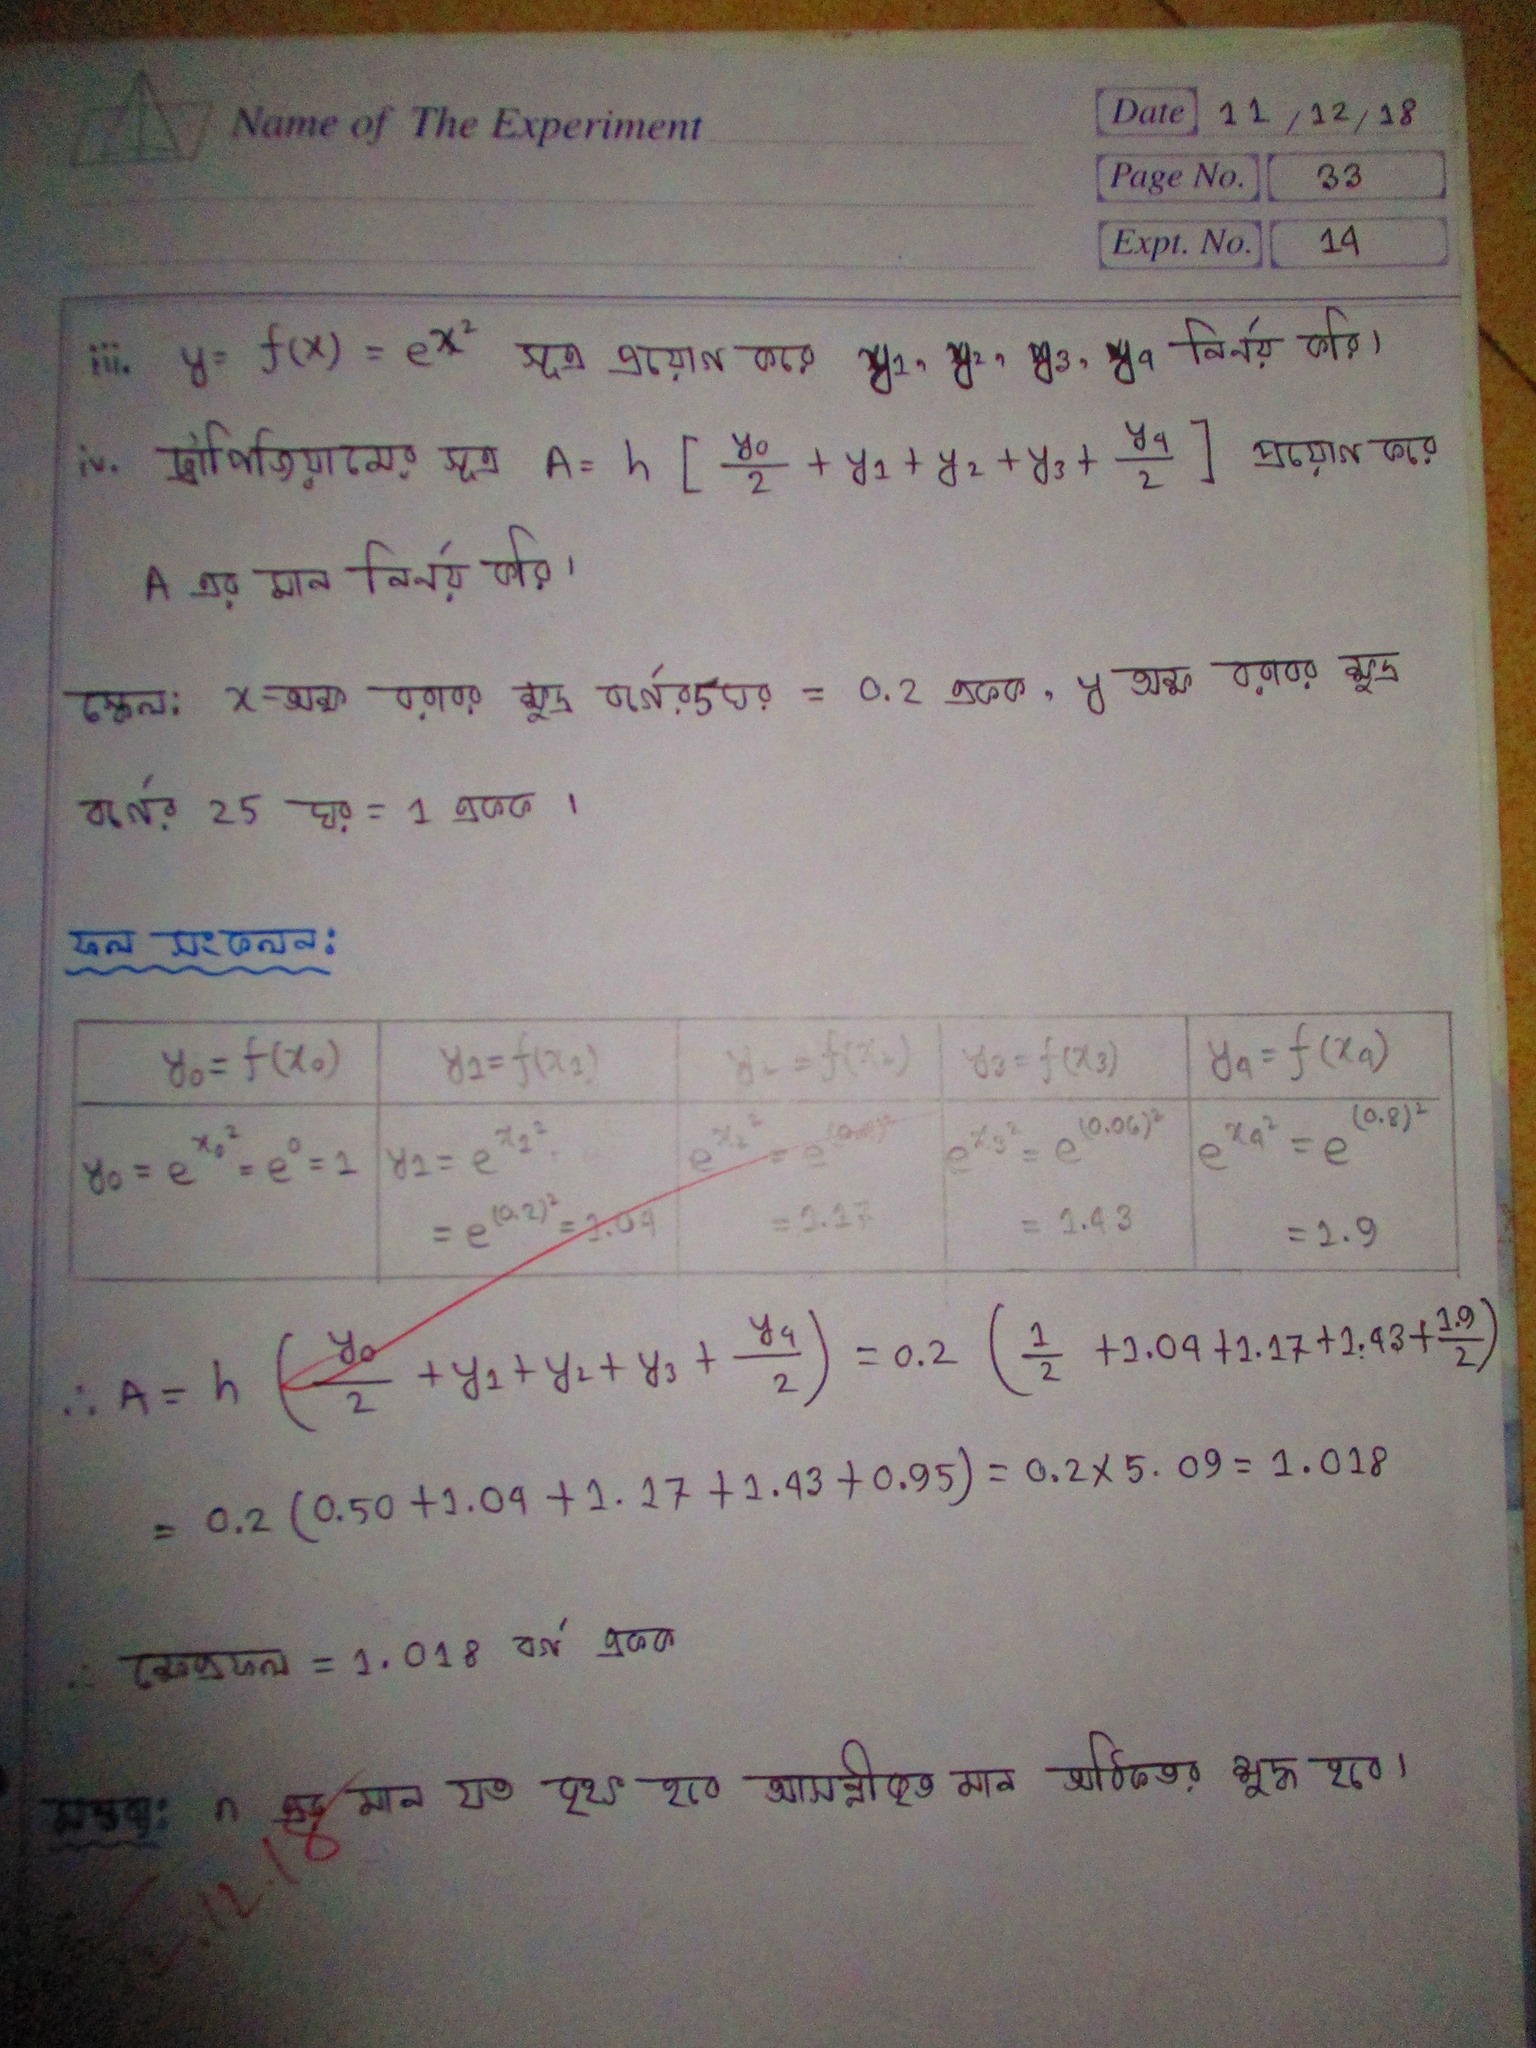 Name of The Experiment
Date 11/12/18
Page No. 33
Expt. No. 14
iii. y = f(x) = e^x² সূত্র প্রয়োগ করে y₁, y₂, y₃, y₄ নির্ণয় করি।
iv. ট্রাপিজিয়ামের সূত্র A = h [ y₀/2 + y₁ + y₂ + y₃ + y₄/2 ] প্রয়োগ করে
A এর মান নির্ণয় করি।
স্কেল: x-অক্ষ বরাবর ক্ষুদ্র বর্গের 5 ঘর = 0.2 একক, y অক্ষ বরাবর ক্ষুদ্র
বর্গের 25 ঘর = 1 একক।
ফল সংকলন:
y₀ = f(x₀) y₁ = f(x₁) y₂ = f(x₂) y₃ = f(x₃) y₄ = f(x₄)
y₀ = e^x₀² = e⁰ = 1 y₁ = e^x₁² e^x₂² = e e^x₃² = e^(0.06)² e^x₄² = e^(0.8)²
= e^(0.2)² = 1.04 = 1.17 = 1.43 = 1.9
∴ A = h ( y₀/2 + y₁ + y₂ + y₃ + y₄/2 ) = 0.2 ( 1/2 + 1.04 + 1.17 + 1.43 + 1.9/2 )
= 0.2 (0.50 + 1.04 + 1.17 + 1.43 + 0.95) = 0.2 × 5.09 = 1.018
∴ ক্ষেত্রফল = 1.018 বর্গ একক
মন্তব্য: n এর মান যত বৃহৎ হবে আসন্নীকৃত মান অধিকতর শুদ্ধ হবে।
12.18